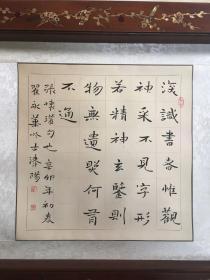 深識書者惟觀
神采不見字形
若精神玄鑒則
物無遺照何有
不通
張懷瓘句也辛卯年初夏
翟永華